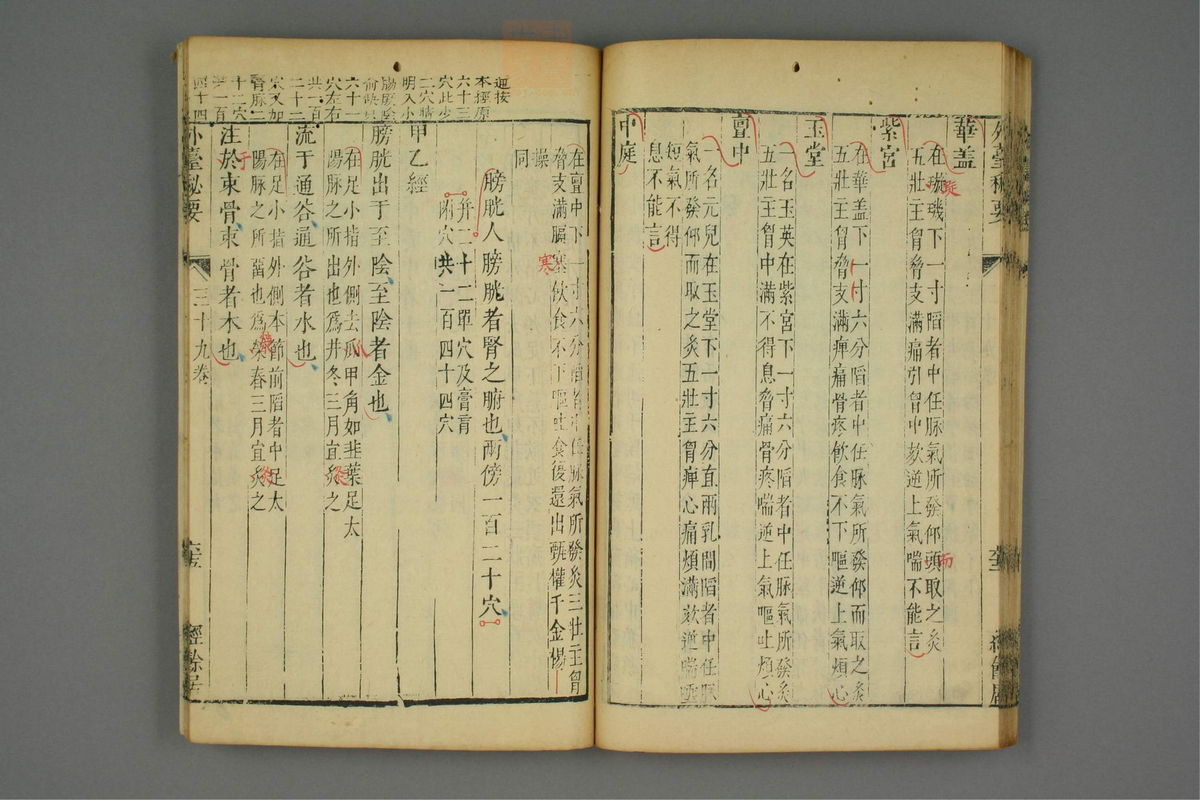 外臺秘要
華蓋
在璇璣下一寸陷者中任脉氣所發仰頭取之灸
五壯主胷脅支滿痛引胷中欬逆上氣喘不能言
紫宮
在華蓋下一寸六分陷者中任脉氣所發仰而取之灸
五壯主胷脅支滿痺痛骨疼飲食不下嘔逆上氣煩心
玉堂
一名玉英在紫宮下一寸六分陷者中任脉氣所發灸
五壯主胷中滿不得息脅痛骨疼喘逆上氣嘔吐煩心
亶中
一名元兒在玉堂下一寸六分直兩乳間陷者中任脉
氣所發仰而取之灸五壯主胷痺心痛煩滿欬逆喘
短氣不得
息不能言
中庭
在亶中下一寸六分陷者中任脉氣所發灸三壯主胷
脅支滿膈塞飲食不下嘔吐食後還出甄權千金楊
操
同
膀胱人膀胱者腎之腑也兩傍一百二十穴
并二十二單穴及膏肓
兩穴共一百四十四穴
甲乙經
膀胱出于至陰至陰者金也
在足小指外側去爪甲角如韭葉足太
陽脉之所出也爲井冬三月宜灸之
流于通谷通谷者水也
在足小指外側本節前陷者中足太
陽脉之所留也爲滎春三月宜灸之
注於束骨束骨者木也
外臺秘要
三十九卷
六十五
經餘居
迥按
本經原
六十三
穴此少
二穴
明入小
六十一
穴左右
共一百
二十二
穴又加
督脉二
十二穴
共一百
四十四